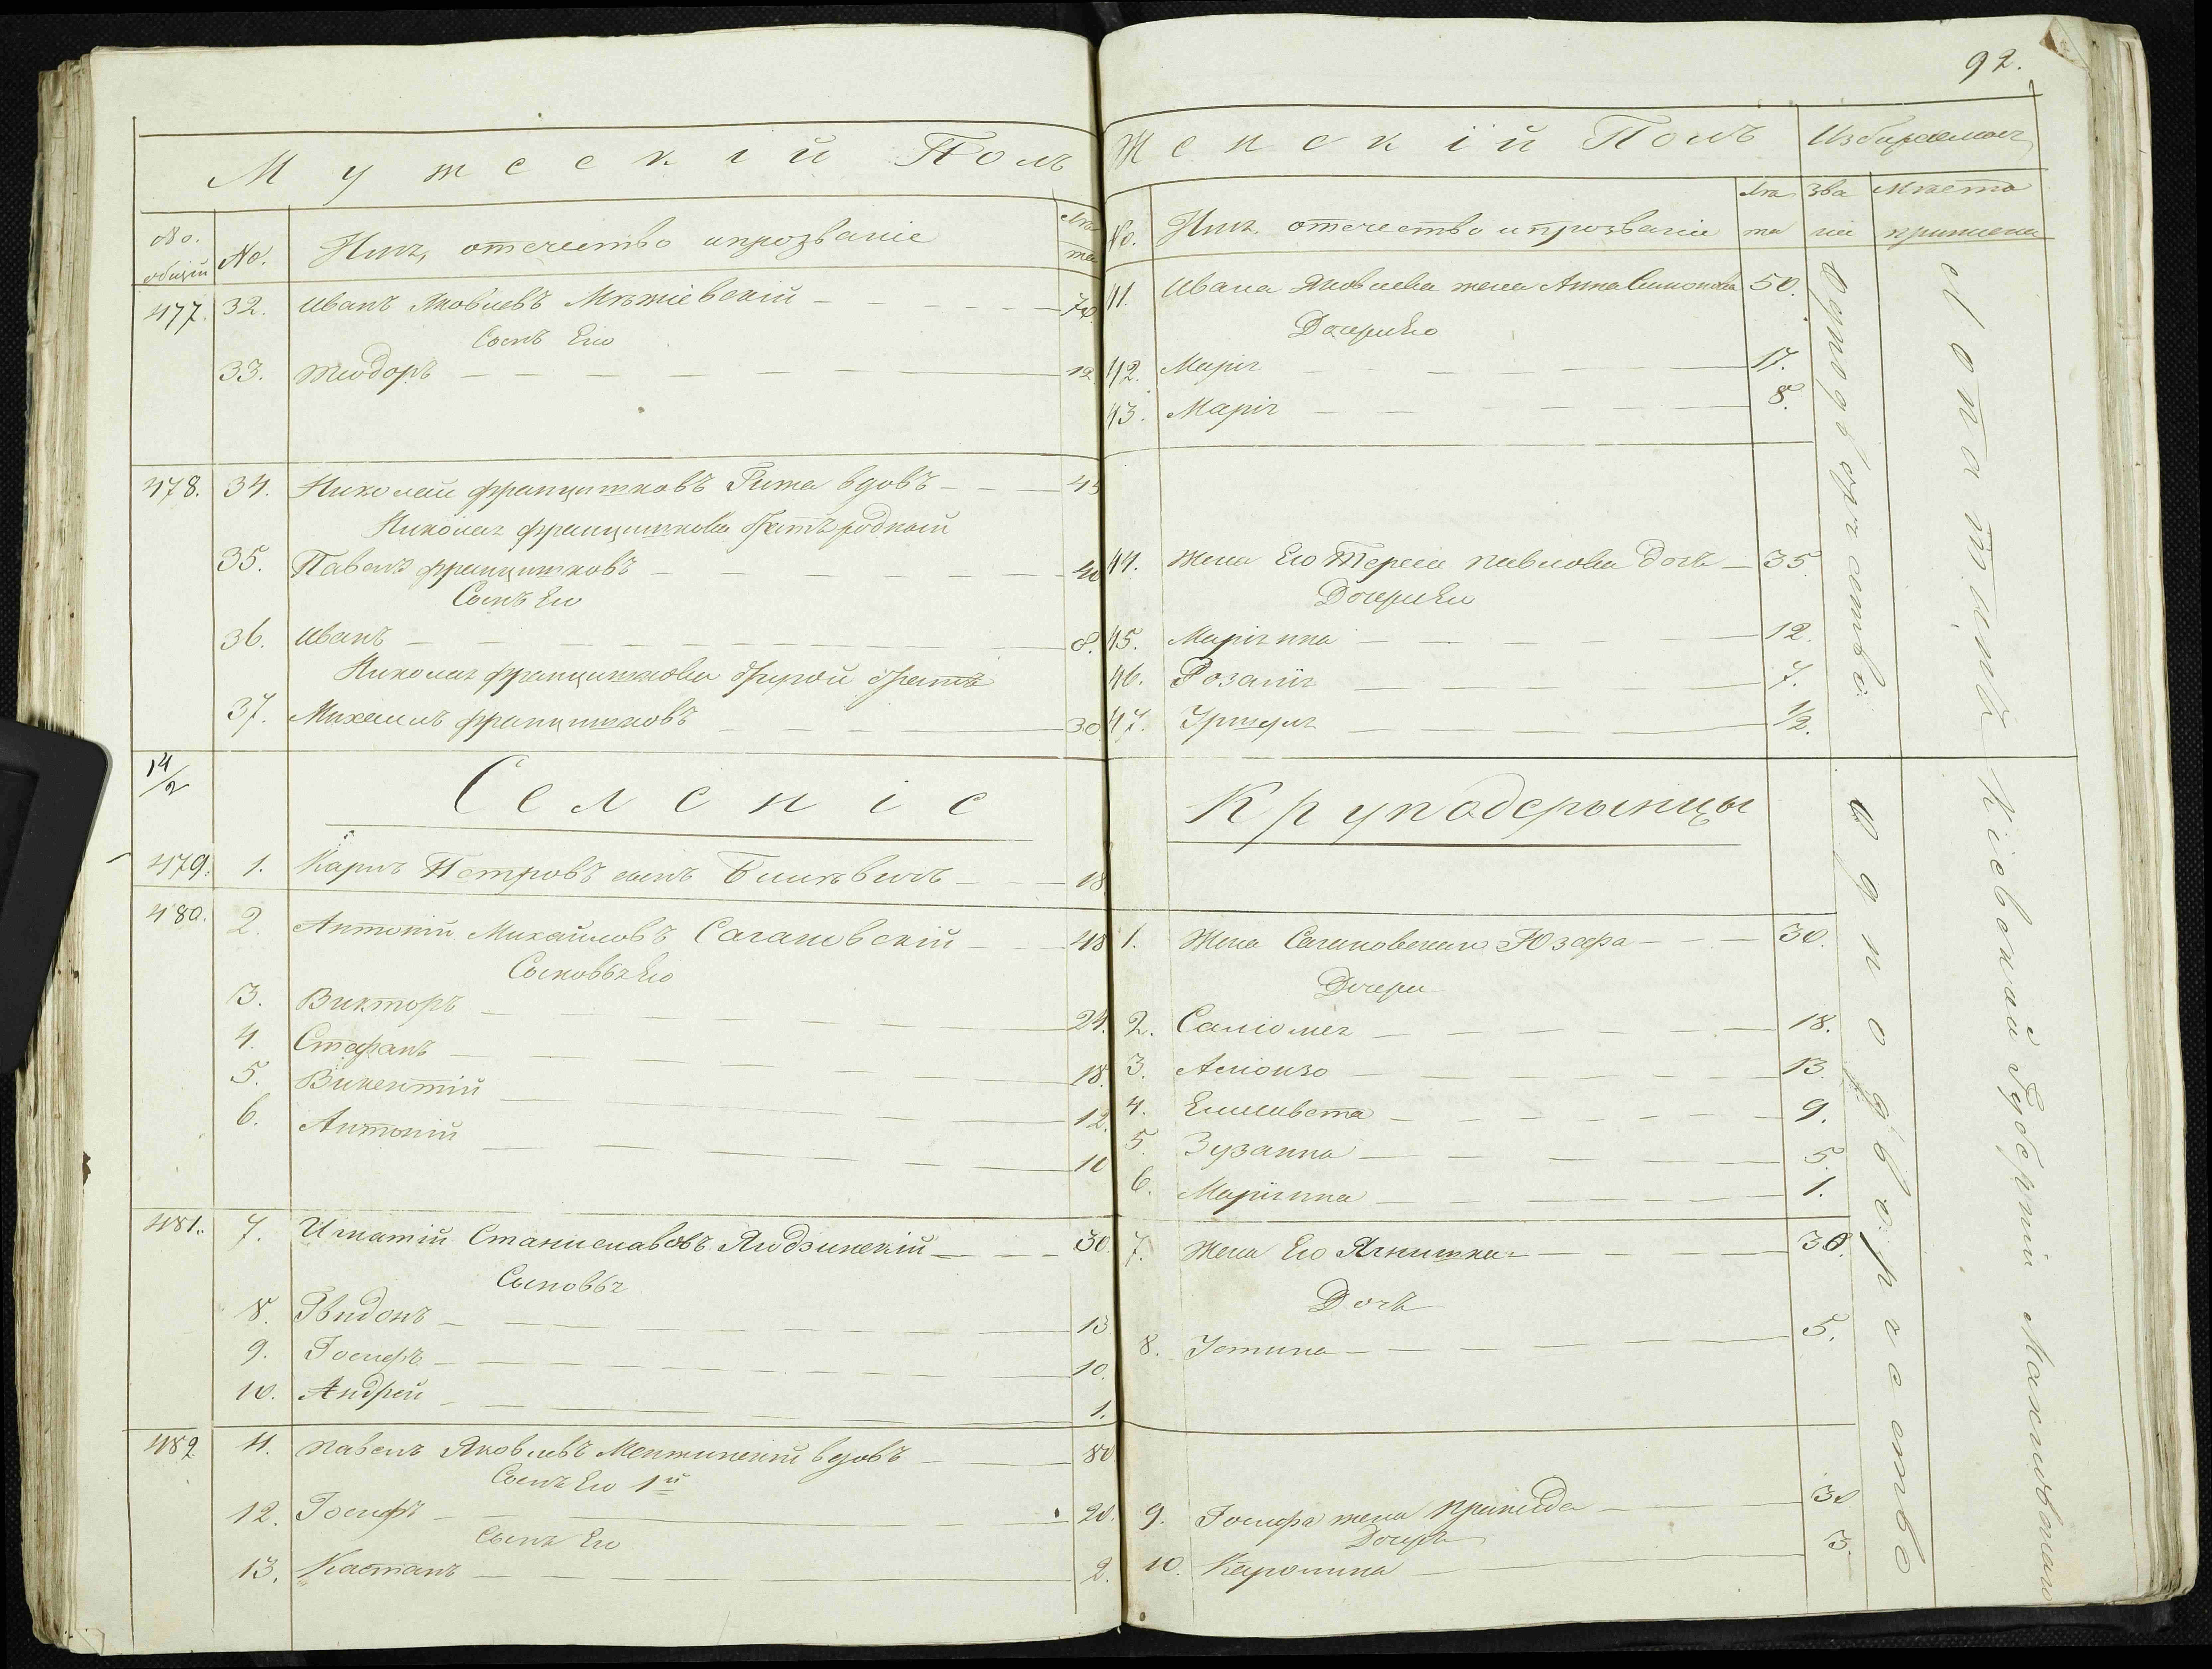 92.
Мужескій Полъ
No. общій
No.
Имя, отечество и прозваніе
Лѣта
477. 32. Иванъ Яковлевъ 70.
Сынъ Его
33. Теодоръ 12.
478. 34. Николай Францишковъ вдовъ 45
Николая Францишкова братъ родный
35. Павелъ Францишковъ 40
Сынъ Его
36. Иванъ 8.
Николая Францишкова другой братъ
37. Михаилъ Францишковъ 30
14/2
Селеніе
479. 1. Карлъ Петровъ сынъ 18
480. 2. Антоній Михайловъ Сагановскій 48
Сыновья Его
3. Викторъ 24.
4. Стефанъ 18.
5. Викентій 12.
6. Антоній 10
481. 7. Игнатій Станиславовъ 30.
Сыновья
8. Гвидонъ 13
9. Іосифъ 10.
10. Андрей 1.
482 11. Павелъ Яковлевъ вдовъ 80
Сынъ Его 1й
12. Іосифъ 20.
Сынъ Его
13. Каетанъ 2.
Женскій Полъ
Избираемыя
No.
Имя, отечество и прозваніе
Лѣта
Званіе
Мѣсто
41. Ивана Яковлева жена Анна Симонова 50.
Дочери Его
42. Марія 17.
43. Марія 8.
44. Жена Его Тереса Павлова дочь 35.
Дочери Ея
45. Маріянна 12.
46. Розалія 7.
47. Уршуля 1/2.
Круподерынцы
1. Жена Сагановскаго Юзефа 30.
Дочери
2. Саліомея 18.
3. 13.
4. Елисавета 9.
5. Зузанна 5.
6. Маріянна 1.
7. Жена Его Ягнишка 30.
Дочь
8. Устина 5.
9. Іосифа жена 30.
Дочерь
10. Каролина 3.
Однодворчество
Однодворчество
Кіевской Губерніи Махновскаго